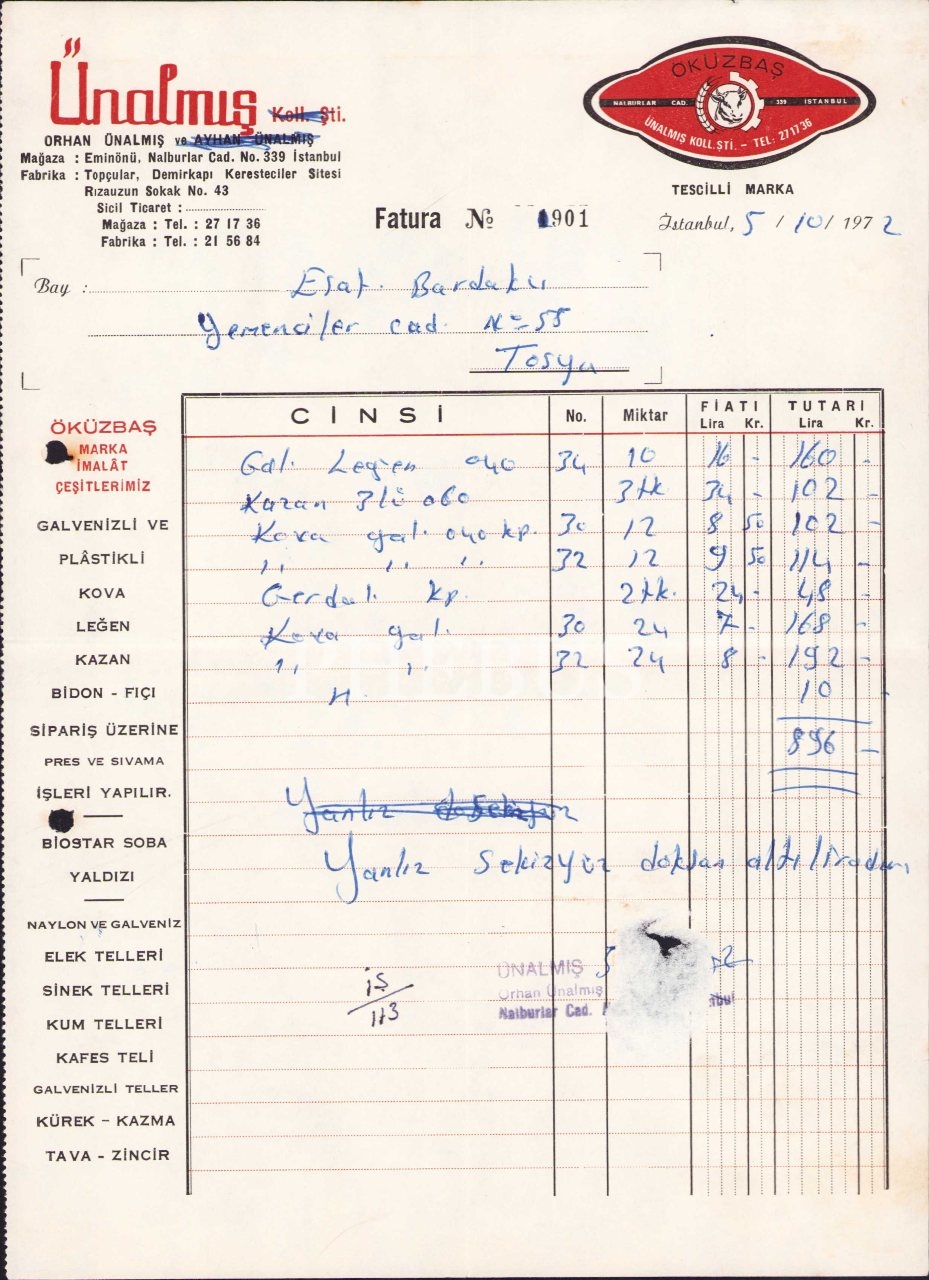 Ünalmış Koll. Şti.
ORHAN ÜNALMIŞ ve AYHAN ÜNALMIŞ
Mağaza : Eminönü, Nalburlar Cad. No. 339 İstanbul
Fabrika : Topçular, Demirkapı Keresteciler Sitesi
Rızauzun Sokak No. 43
Sicil Ticaret :
Mağaza : Tel. : 27 17 36
Fabrika : Tel. : 21 56 84
ÖKÜZBAŞ
NALBURLAR CAD. 339 İSTANBUL
ÜNALMIŞ KOLL. ŞTİ. – TEL: 271736
TESCİLLİ MARKA
Fatura № 1901
İstanbul, 5 / 10 / 1972
Bay : Esat Bardakcı
Yemenciler cad. No 55
Tosya
CİNSİ No. Miktar FİATI Lira Kr. TUTARI Lira Kr.
Gal. Leğen 040 34 10 16 - 160 -
Kazan 3 lü 060 3 tk 34 - 102 -
Kova gal. 040 kp. 30 12 8 50 102 -
" " " 32 12 9 50 114 -
Gerdal kp. 2 tk. 24 - 48 -
Kova gal. 30 24 7 - 168 -
" " 32 24 8 - 192 -
H. 10 -
896 -
Yanlız
Yanlız sekizyüz doksan altı liradır
ÖKÜZBAŞ
MARKA
İMALÂT
ÇEŞİTLERİMİZ
GALVENİZLİ VE
PLÂSTİKLİ
KOVA
LEĞEN
KAZAN
BİDON - FIÇI
SİPARİŞ ÜZERİNE
PRES VE SIVAMA
İŞLERİ YAPILIR.
BİOSTAR SOBA
YALDIZI
NAYLON VE GALVENİZ
ELEK TELLERİ
SİNEK TELLERİ
KUM TELLERİ
KAFES TELİ
GALVENİZLİ TELLER
KÜREK – KAZMA
TAVA - ZİNCİR
İŞ
113
ÜNALMIŞ
Orhan Ünalmış
Nalburlar Cad.